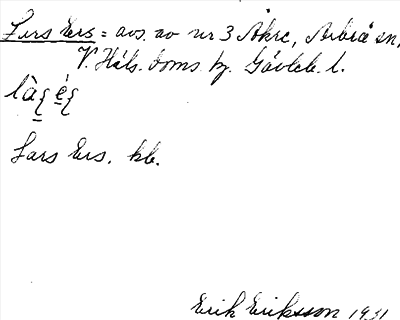 Lars Ers = avs. av nr 3 Åkre, Arbrå sn,
V. Häls. doms. hg. Gävleb. l.
Lars Ers. kb.
Erik Eriksson 1931